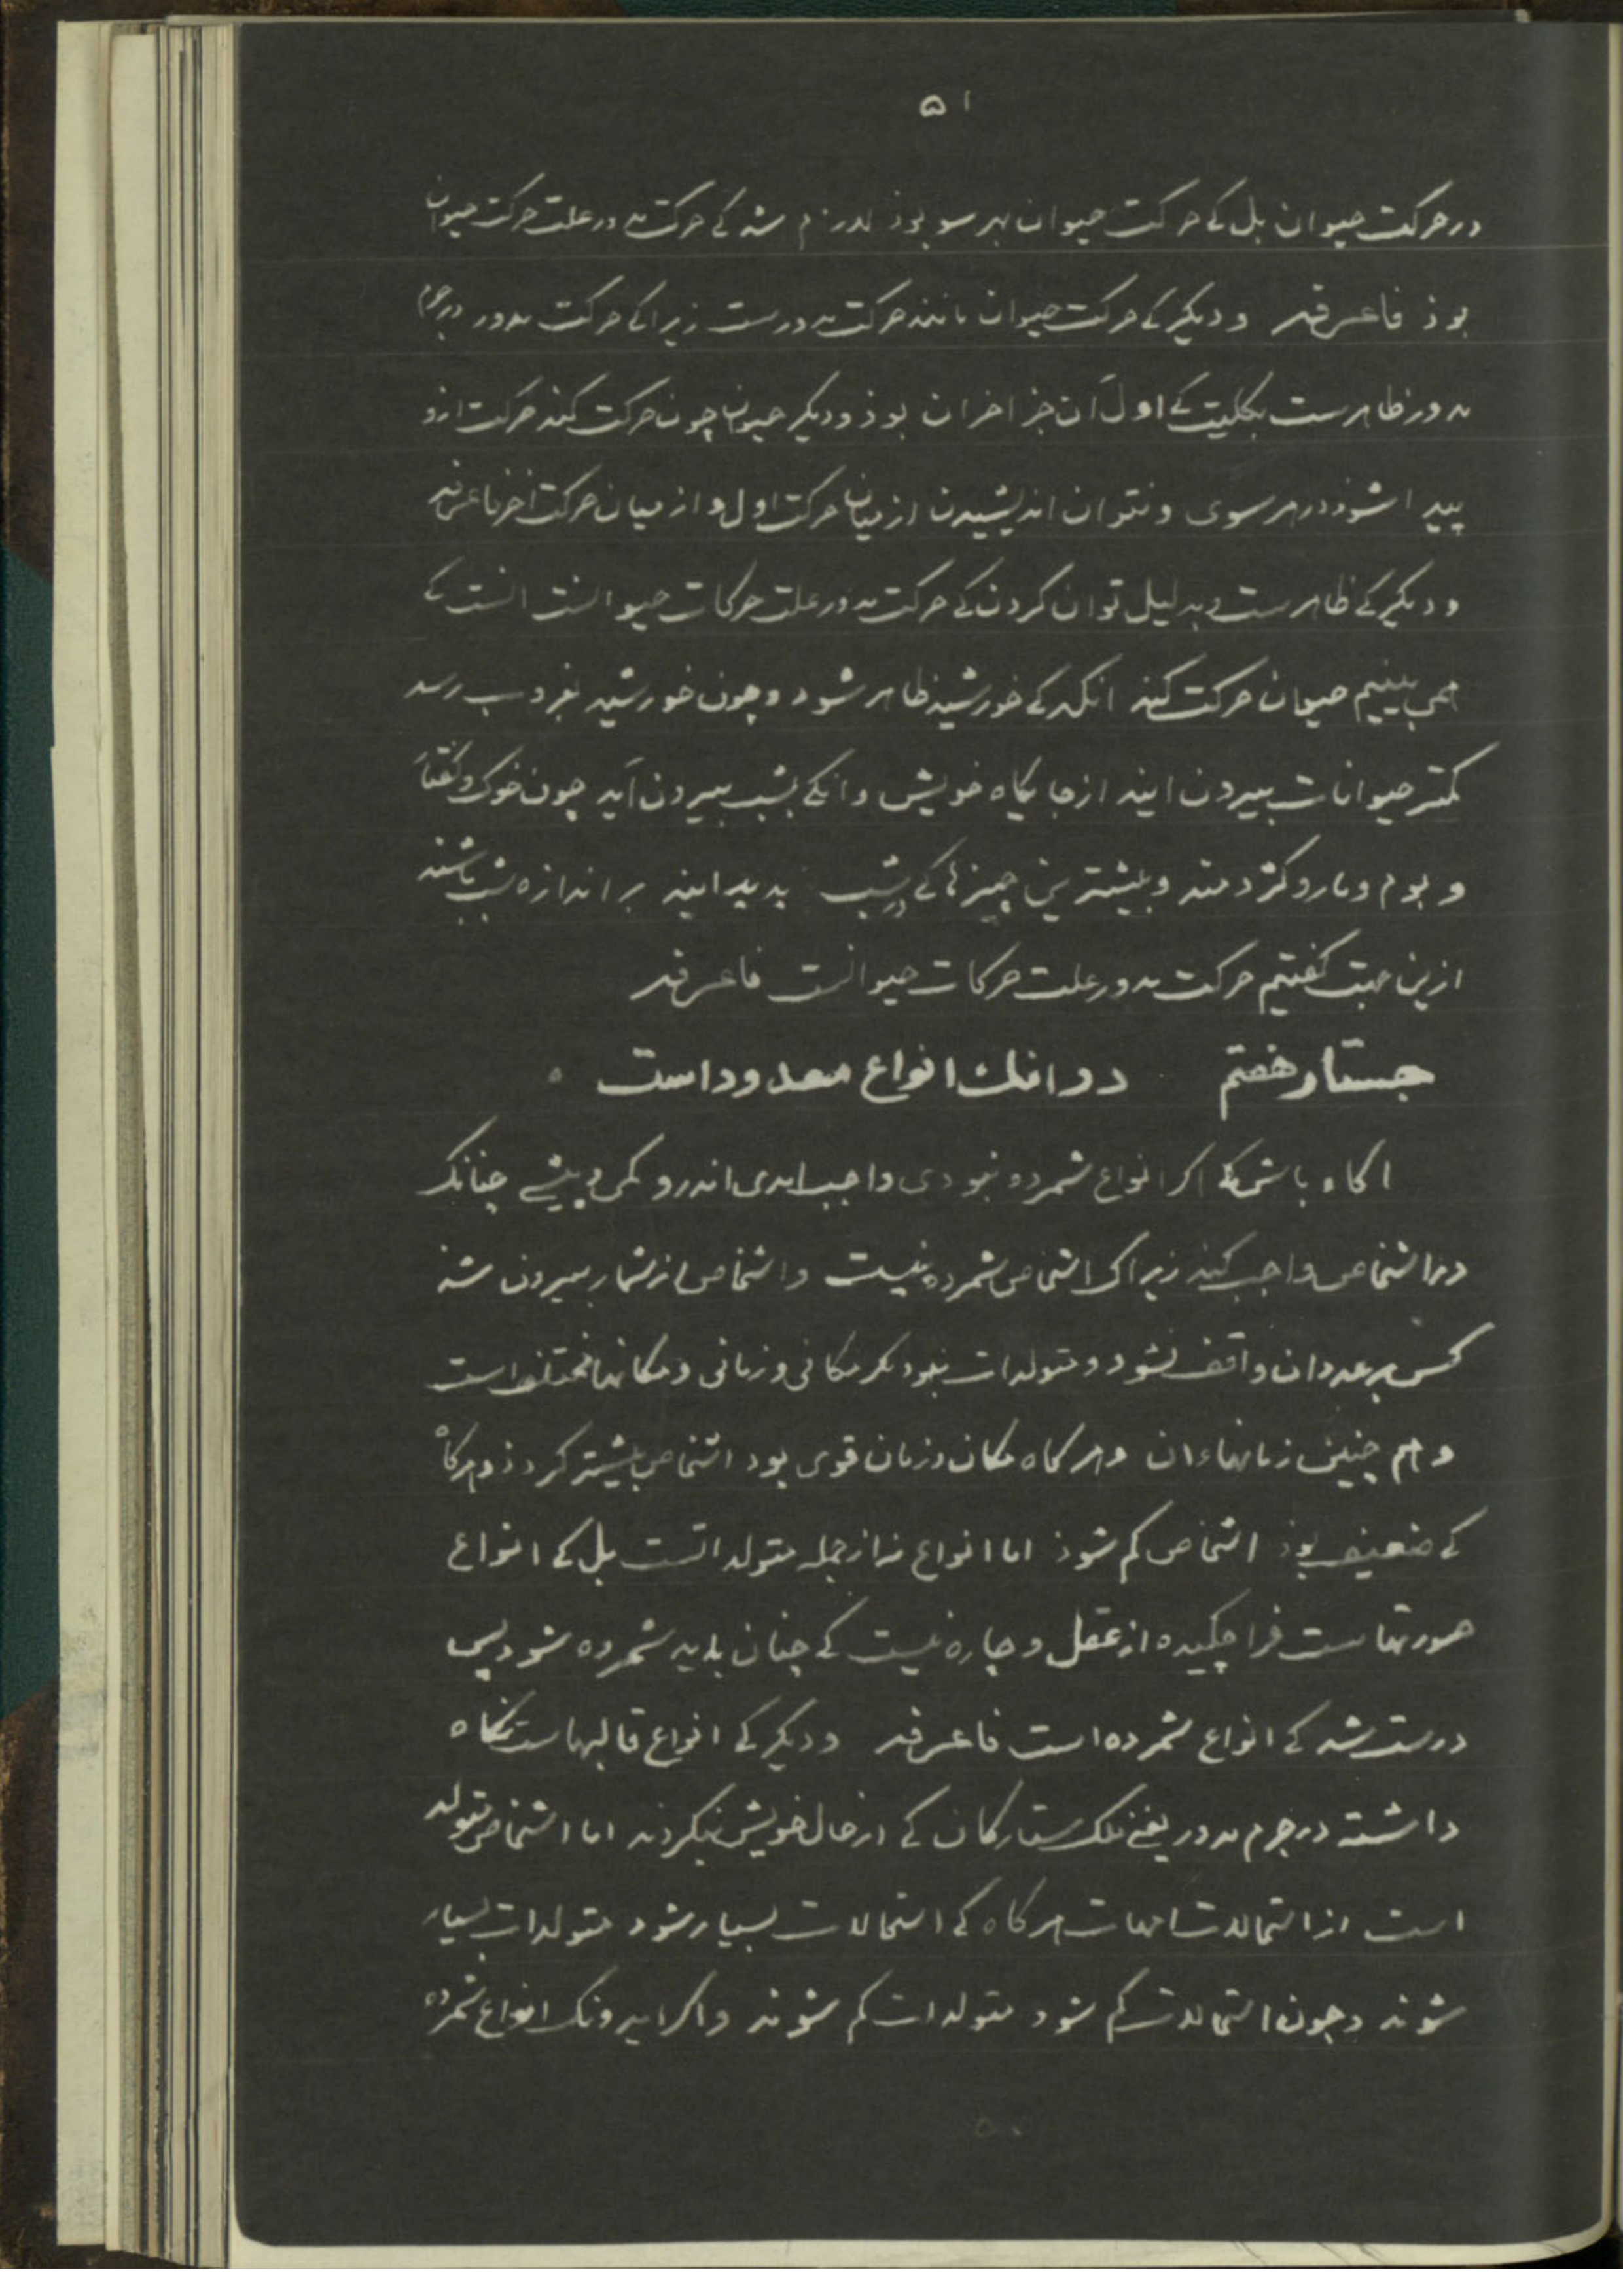 ۵۱
در حرکت حیوان بل کی حرکت حیوان بهر سو بوذ لازم شد کی حرکت مدور علت حرکت حیوان
بوذ فاعرفه و دیگر کی حرکت حیوان مانند حرکت مدورست زیرا کی حرکت مدور در جرم
مدور ظاهرست بکلیت کی اول آن جز اخران بوذ و دیگر حیوان چون حرکت کند حرکت ازو
پیدا شوذ در هر سوی و نتوان اندیشیدن از میان حرکت اول و از میان حرکت اخر فاعرفه
و دیگر کی ظاهرست و بدلیل توان کردن کی حرکت مدور علت حرکات حیوانست انست کی
همی بینیم حیوان حرکت کند انگه کی خورشید ظاهر شود و چون خورشید بغروب رسد
کمتر حیوانات بیرون ایند از جایگاه خویش وانکی بشب بیرون آید چون خوک و کفتار
و بوم و مار و کژدمند و بیشترین چیزها کی در شب پدید ایند بر اندازه شب باشند
ازین جهت گفتیم حرکت مدور علت حرکات حیوانست فاعرفه
جستار هفتم در انک انواع معدود است
اکاه باش که اکر انواع شمرده نبودی واجب امدی اندرو کمی و بیشی چنانک
در اشخاص واجب کند زیراک اشخاص شمرده نیست و اشخاص از شمار بیرون شد
کس بر عدد ان واقف نشود و متولدات نبود مکر مکانی و زمانی و مکانها مختلف است
و هم چنین زمانهاء ان و هر کاه مکان و زمان قوی بود اشخاص بیشتر کردذ و هرکاه
کی ضعیف بوذ اشخاص کم شوذ اما انواع نه از جمله متولداتست بل کی انواع
صورتهاست فرا چکیده از عقل و چاره نیست کی چنان باید شمرده شود پس
درست شد کی انواع شمرده است فاعرفه و دیگر کی انواع قالبهاست نگاه
داشته در جرم مدور یعنی فلک ستارگان کی از حال خویش نگردد اما اشخاص متولد
است از استحالات امهات هر گاه کی استحالات بسیار شود متولدات بسیار
شوند و چون استحالات کم شود متولدات کم شوند و اکر ایدونک انواع شمرده